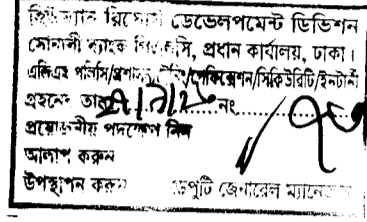 হিউম্যান রিসোর্স ডেভেলপমেন্ট ডিভিশন
সোনালী ব্যাংক পিএলসি, প্রধান কার্যালয়, ঢাকা।
এলিএই পলিসি/প্রশাসন/ট্রেনিং/পেনশন/সিকিউরিটি/ইন্টার্নী
গ্রহনের তাং.................নং................
প্রয়োজনীয় পদক্ষেপ নিন
আলাপ করুন
উপস্থাপন করুন ডেপুটি জেনারেল ম্যানেজার